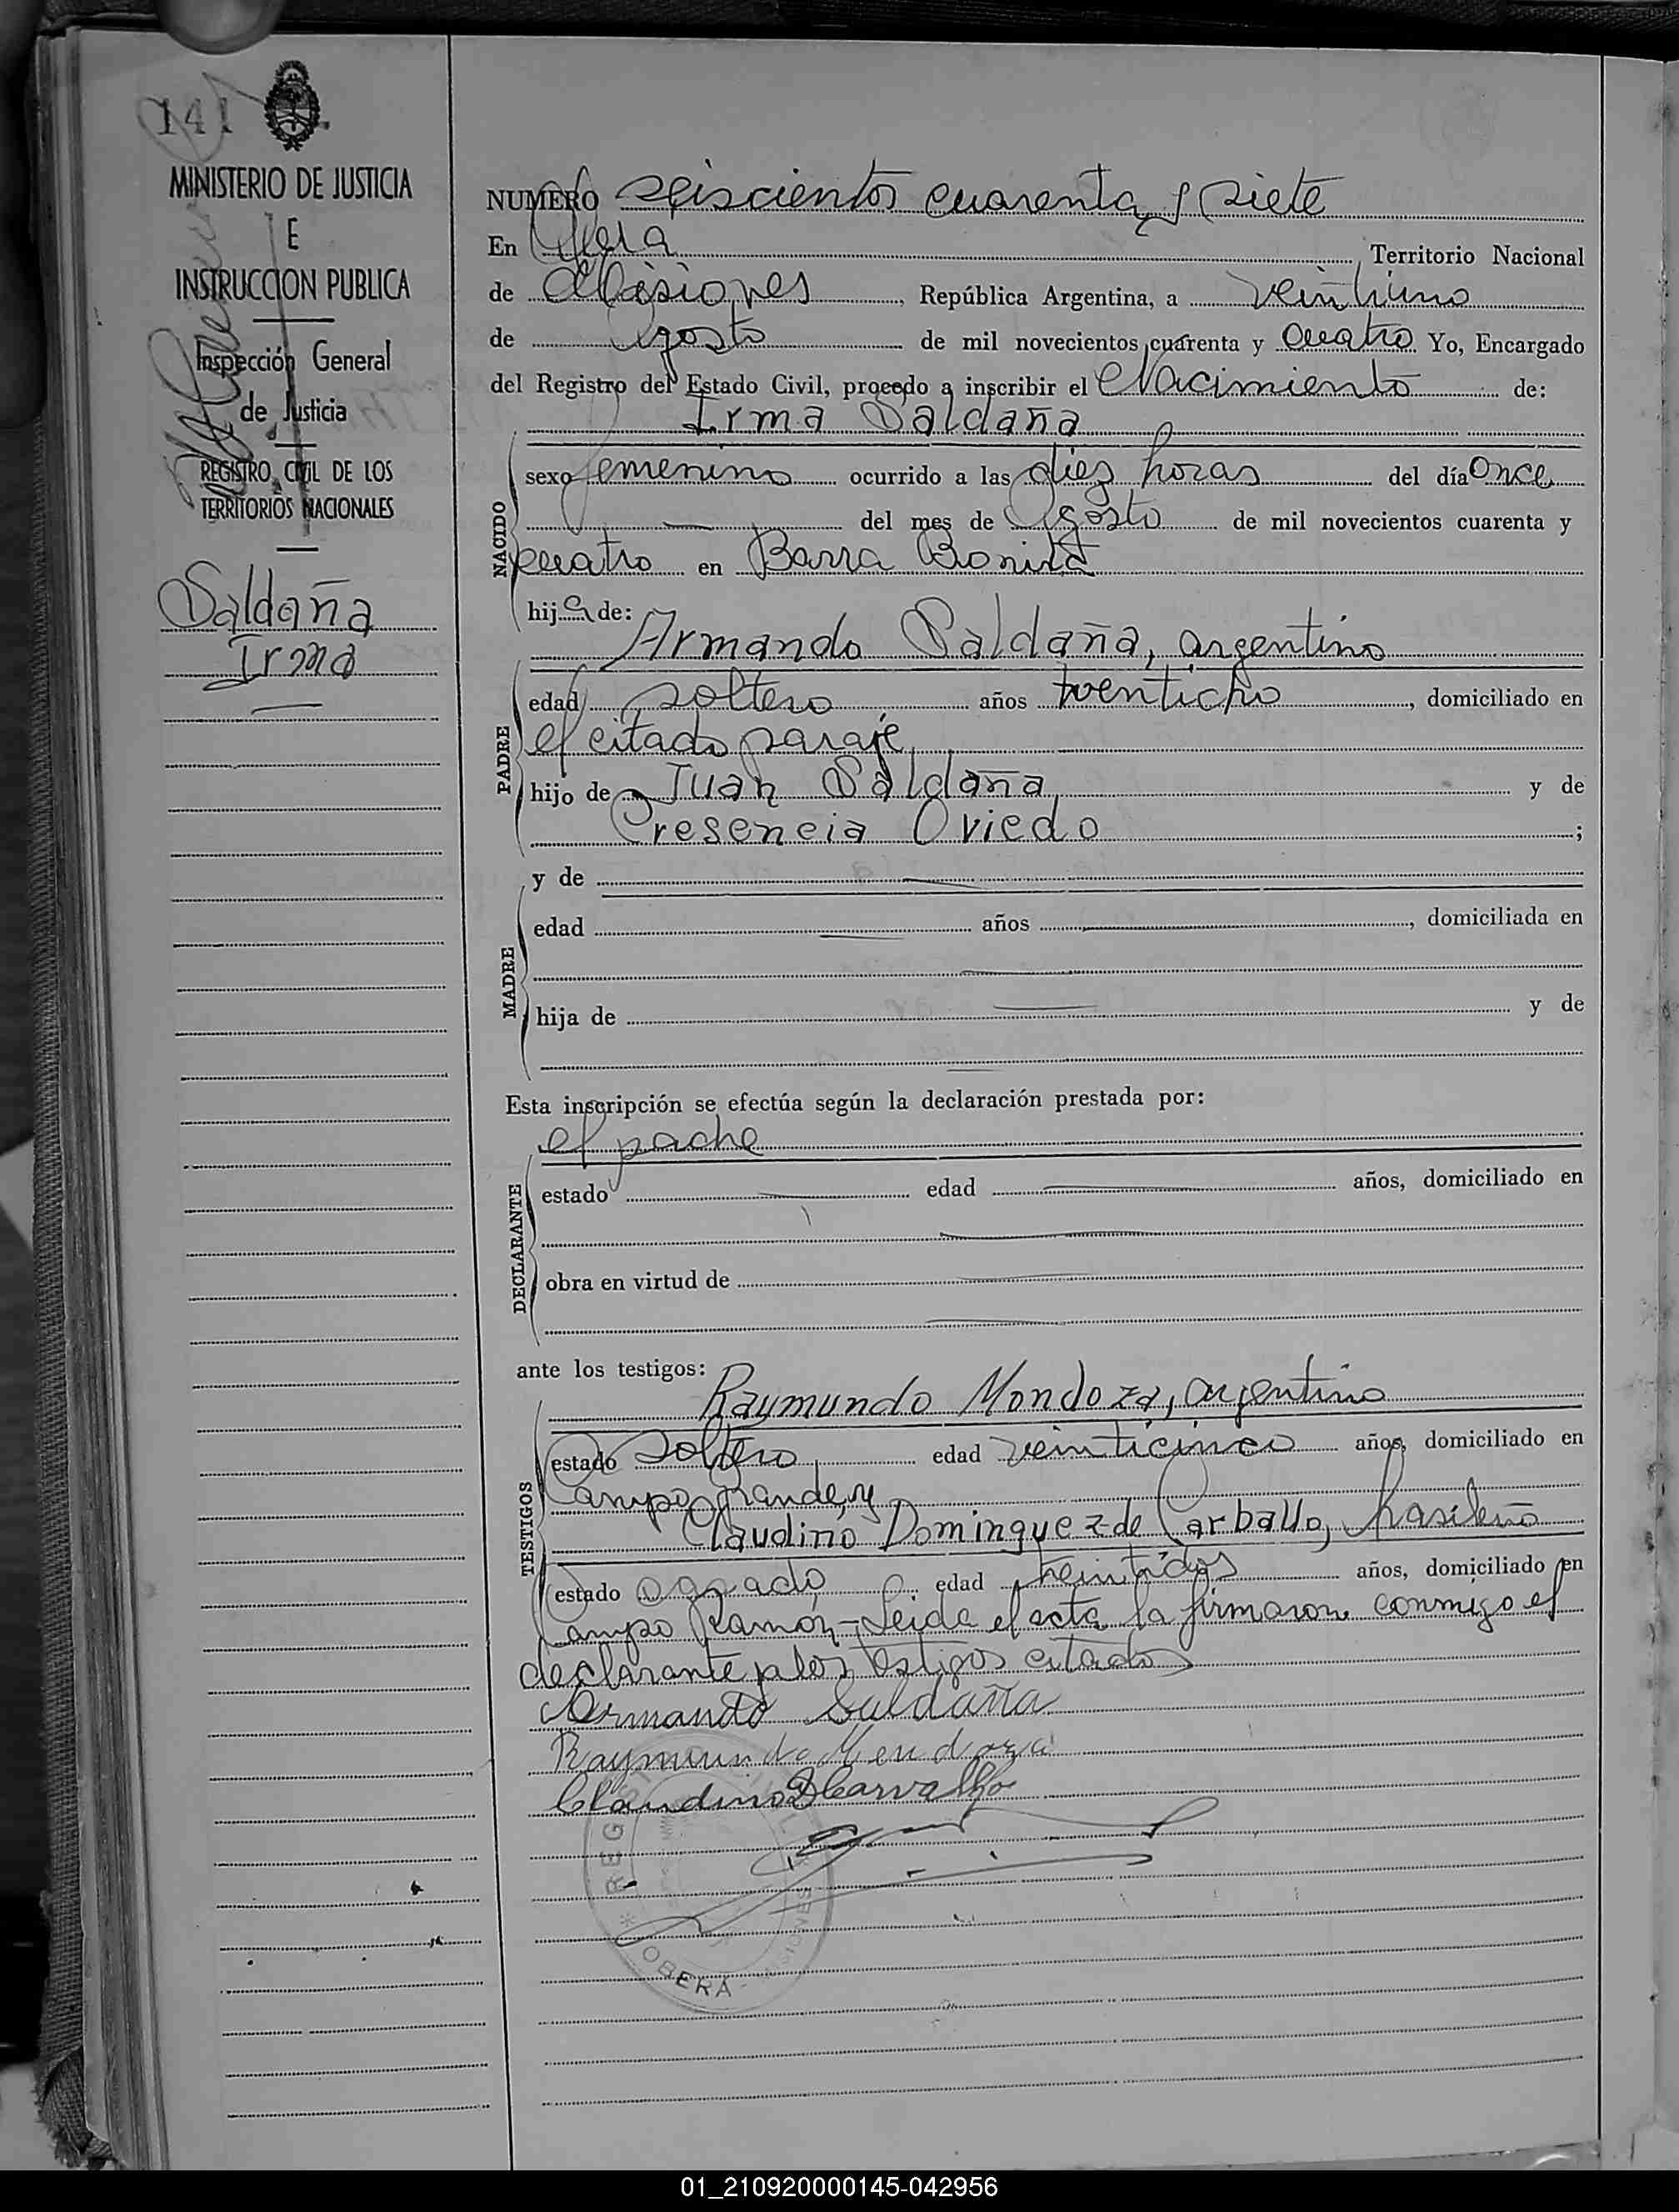 141
MINISTERIO DE JUSTICIA
E
INSTRUCCION PUBLICA
Inspección General
de Justicia
REGISTRO CIVIL DE LOS
TERRITORIOS NACIONALES
Saldaña
Irma
NUMERO seiscientos cuarenta y siete
En Territorio Nacional
de Misiones, República Argentina, a veintiuno
de Agosto de mil novecientos cuarenta y cuatro Yo, Encargado
del Registro del Estado Civil, procedo a inscribir el Nacimiento de:
Irma Saldaña
NACIDO
sexo femenino ocurrido a las diez horas del día once
del mes de Agosto de mil novecientos cuarenta y
cuatro en Barra Bonita
hija de:
Armando Saldaña, argentino
PADRE
edad soltero años , domiciliado en
el citado paraje
hijo de Juan Saldaña y de
Cresencia Oviedo ;
y de
MADRE
edad años , domiciliada en
hija de y de
Esta inscripción se efectúa según la declaración prestada por:
el padre
DECLARANTE
estado edad años, domiciliado en
obra en virtud de
ante los testigos:
Raymundo Mondoza, argentino
TESTIGOS
estado soltero edad veinticinco años, domiciliado en
Campo Grande, y
Claudino Dominguez de Carballo, brasileño
estado casado edad treintidos años, domiciliado en
Campo Ramón - Leida el acta la firmaron conmigo el
declarante y los testigos citados
Armando Saldaña
Raymundo Mendoza
Claudino D Carvalho
REG
OBERÁ - MISIONES
01_210920000145-042956